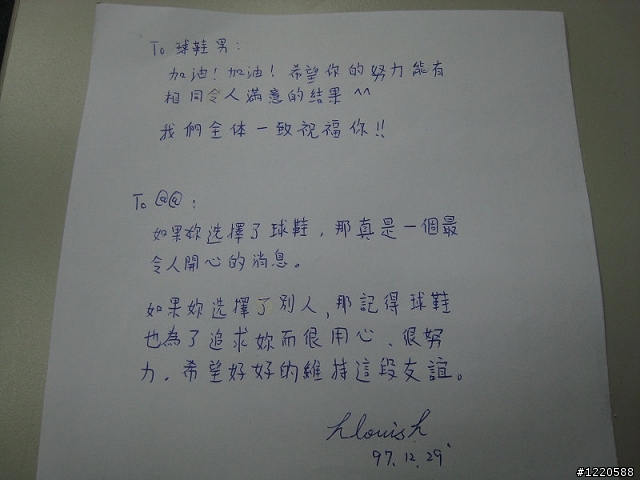 To 球鞋男:
加油! 加油! 希望你的努力能有
相同令人滿意的結果^^
我們全体一致祝福你!!
To @@:
如果妳選擇了球鞋,那真是一個最
令人開心的消息。
如果妳選擇了別人,那記得球鞋
也為了追求妳而很用心、很努
力,希望好好的維持這段友誼。
hlouish
97.12.29'
#1220588